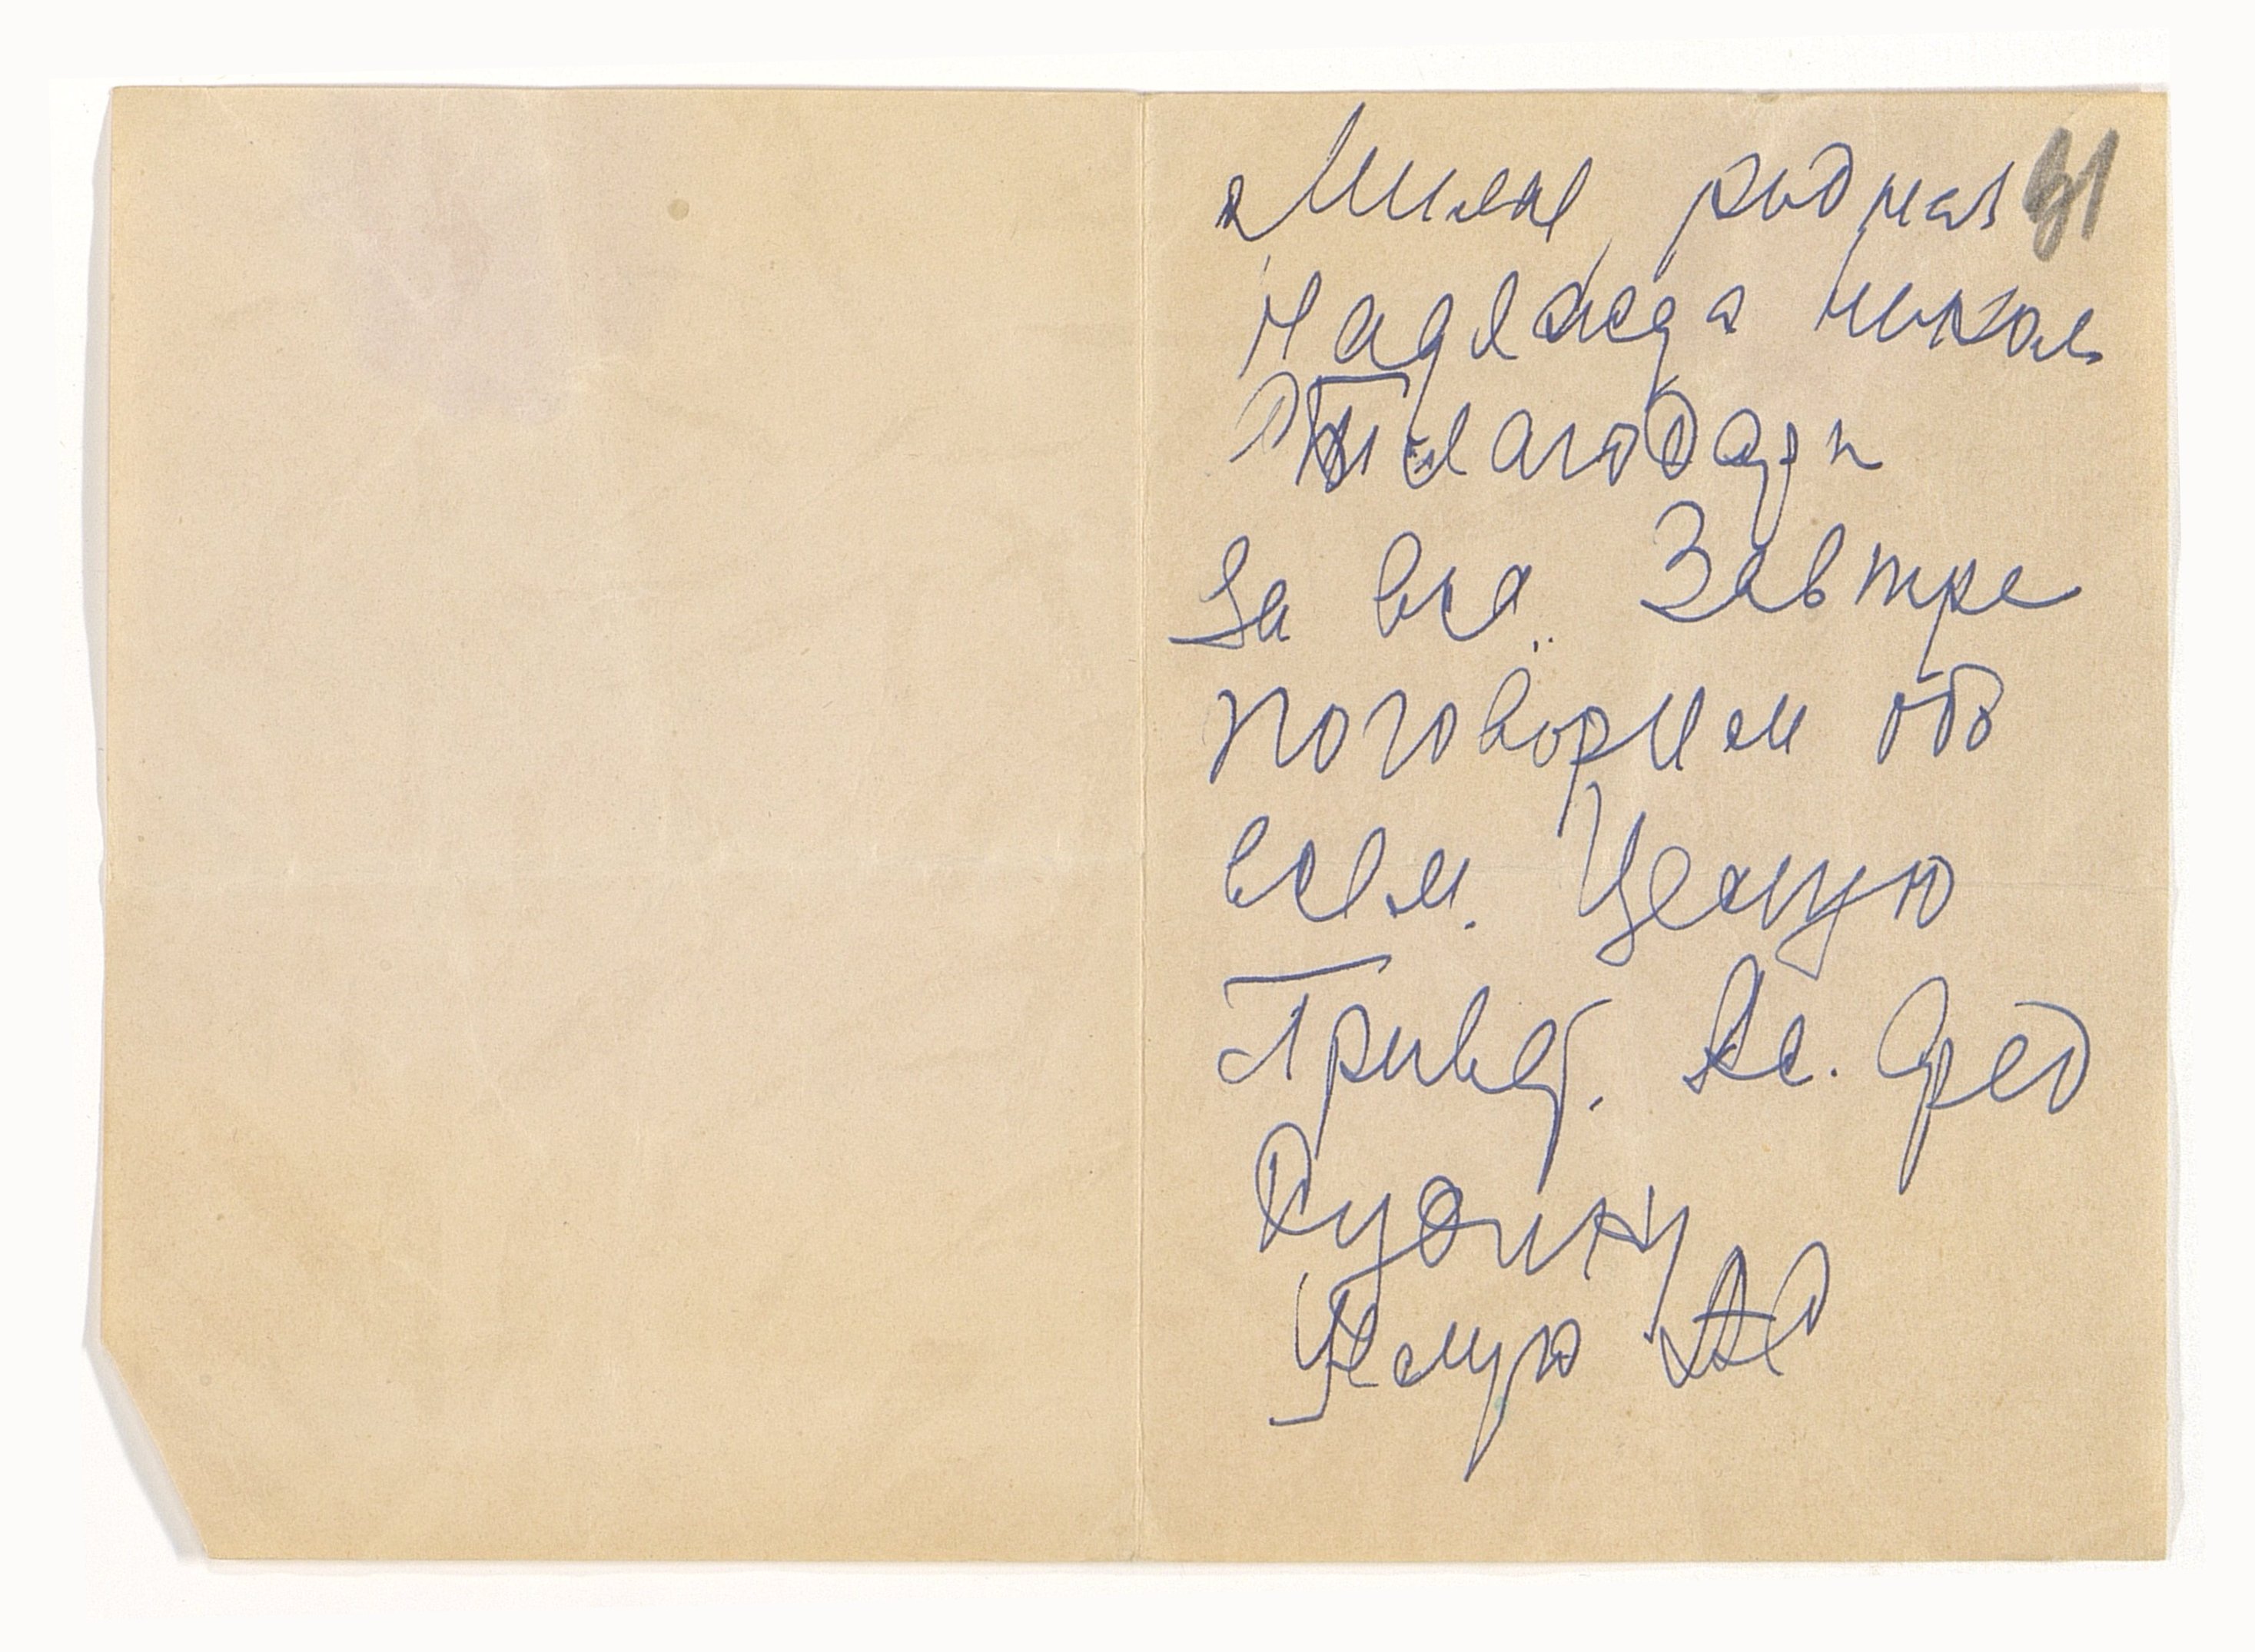 Милая, родная 91
Надежда Никол
Благодарю
За все. Завтра
поговорим обо
всем. Целую
Привет. Ал. Фед
Кудину
Целую АД